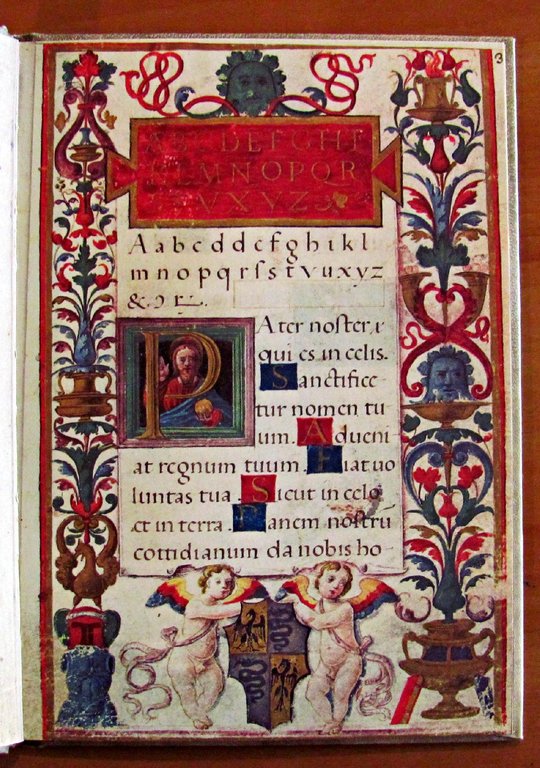 3
A B C D E F G H I
K L M N O P Q R
V X Y Z
A a b c d d e f g h i k l
m n o p q r ſ s t v u x y z
& ꝯ
Pater noſter,
qui es in celis.
Sanctifice
tur nomen tu
um. Adueni
at regnum tuum. Fiat uo
luntas tua. Sicut in celo
et in terra. Panem noſtrū
cottidianum da nobis ho